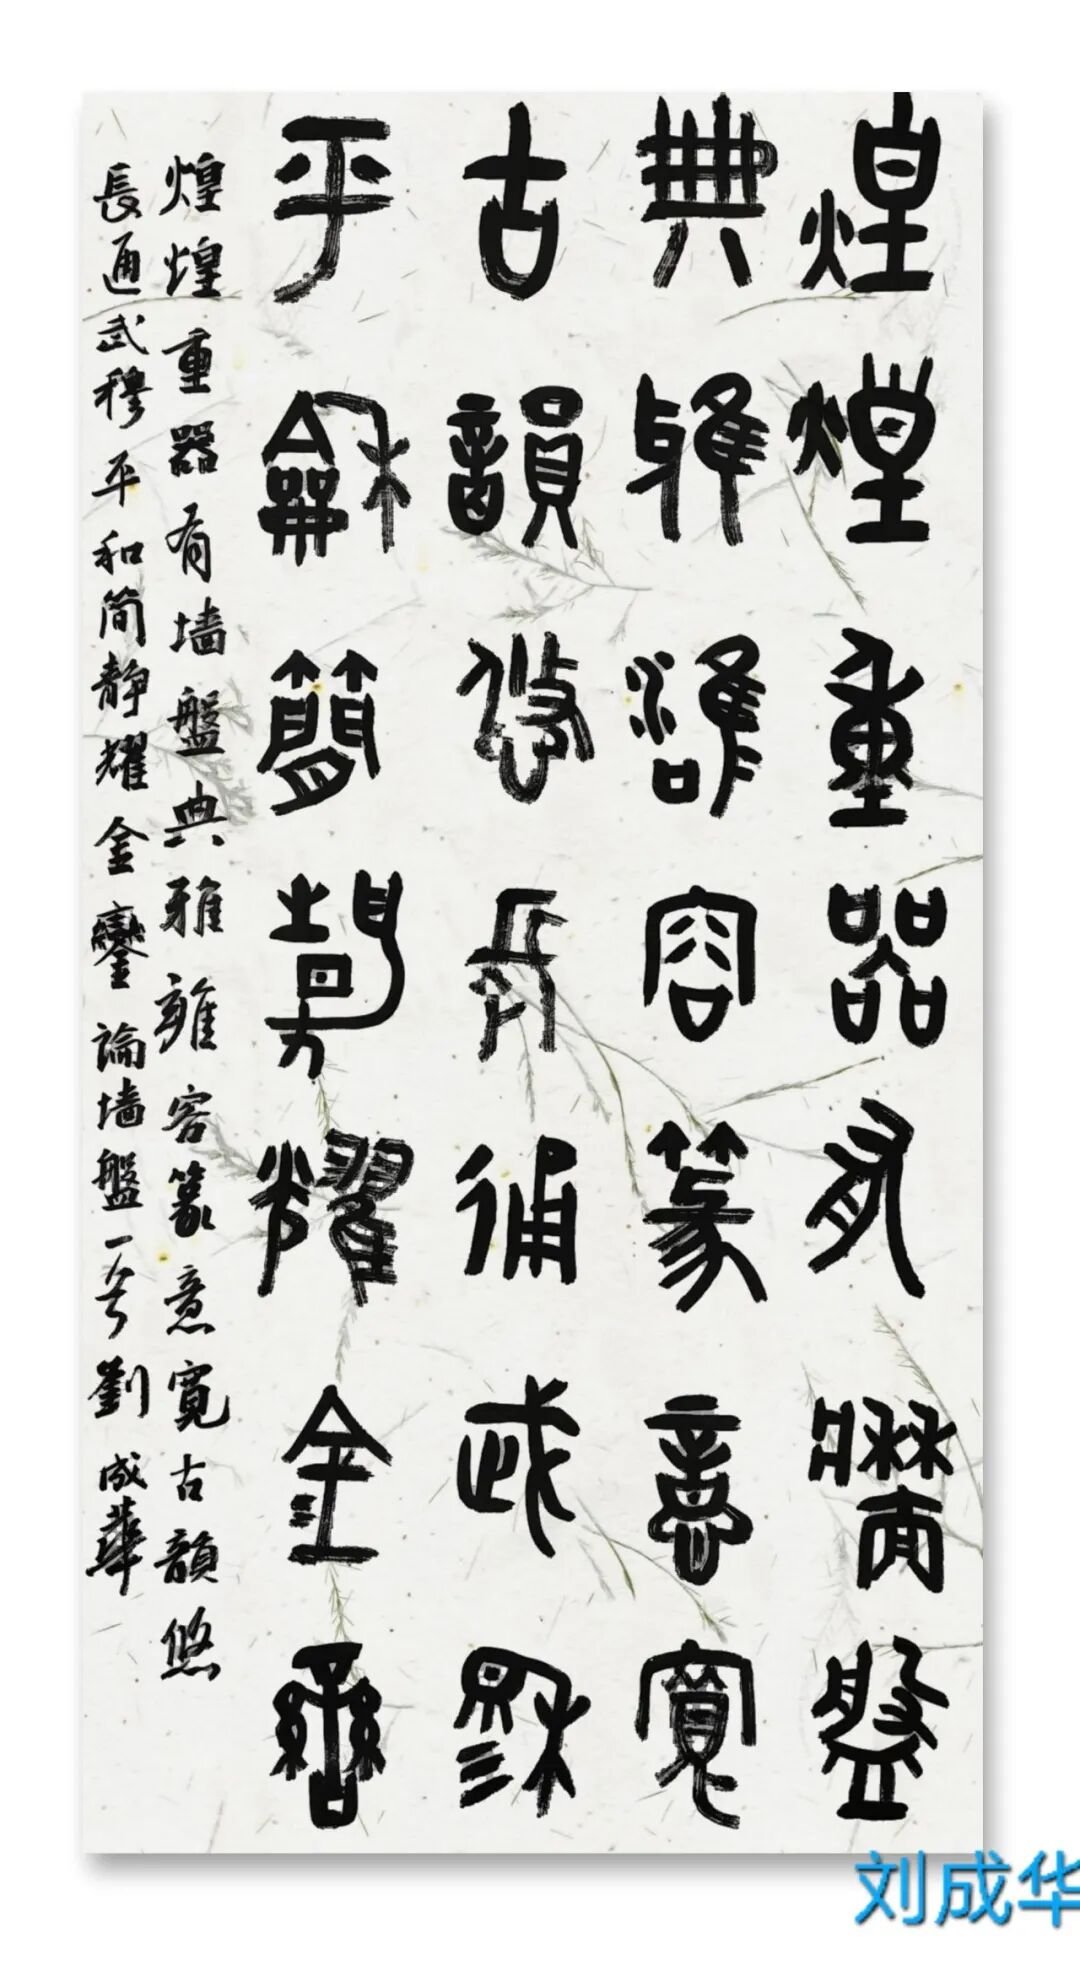 煌煌重器有牆盤
典雅雝容篆意寬
古韻悠長通武穆
平龢簡靜耀金鑾
煌煌重器有墙盤典雅雍容篆意寬古韻悠
長通武穆平和简静耀金鑾論墙盤一首劉成華
刘成华